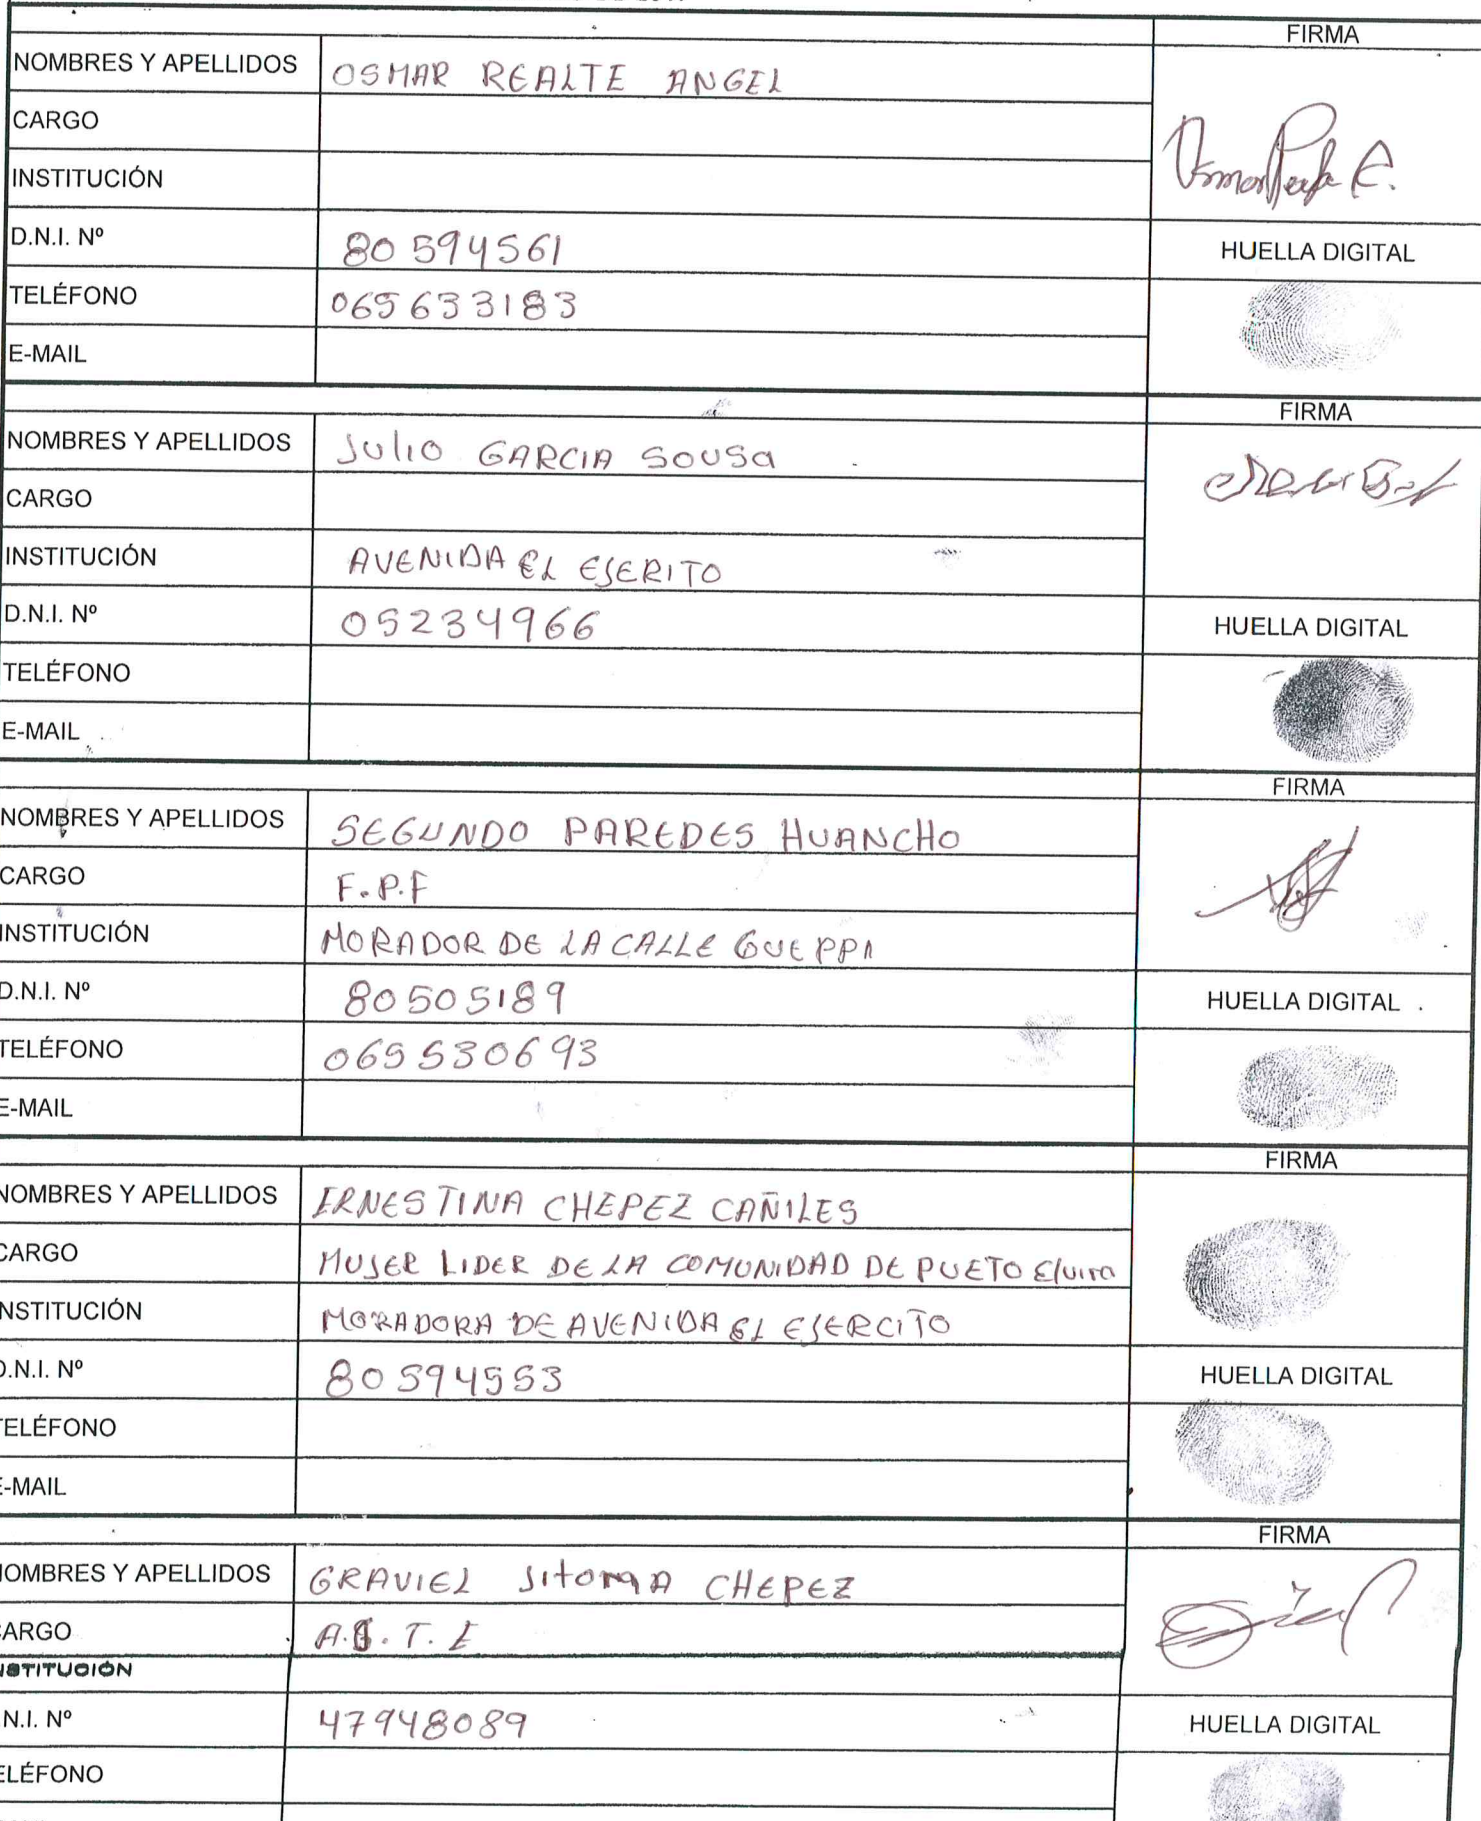 FIRMA
NOMBRES Y APELLIDOS OSMAR REALTE ANGEL
CARGO
INSTITUCIÓN
D.N.I. Nº 80594561
HUELLA DIGITAL
TELÉFONO 065633183
E-MAIL
FIRMA
NOMBRES Y APELLIDOS Julio GARCIA SOUSA
CARGO
INSTITUCIÓN AVENIDA EL ESERITO
D.N.I. Nº 05234966
HUELLA DIGITAL
TELÉFONO
E-MAIL
FIRMA
NOMBRES Y APELLIDOS SEGUNDO PAREDES HUANCHO
CARGO F.P.F
INSTITUCIÓN MORADOR DE LA CALLE GUEPPA
D.N.I. Nº 80505189
HUELLA DIGITAL
TELÉFONO 065530693
E-MAIL
FIRMA
NOMBRES Y APELLIDOS ERNESTINA CHEPEZ CAÑILES
CARGO MUJER LIDER DE LA COMUNIDAD DE PUETO Elvira
INSTITUCIÓN MORADORA DE AVENIDA EL EJERCITO
D.N.I. Nº 80594553
HUELLA DIGITAL
TELÉFONO
E-MAIL
FIRMA
NOMBRES Y APELLIDOS GRAVIEL Sitoma CHEPEZ
CARGO
INSTITUCIÓN
N.I. Nº 47948089
HUELLA DIGITAL
ELÉFONO